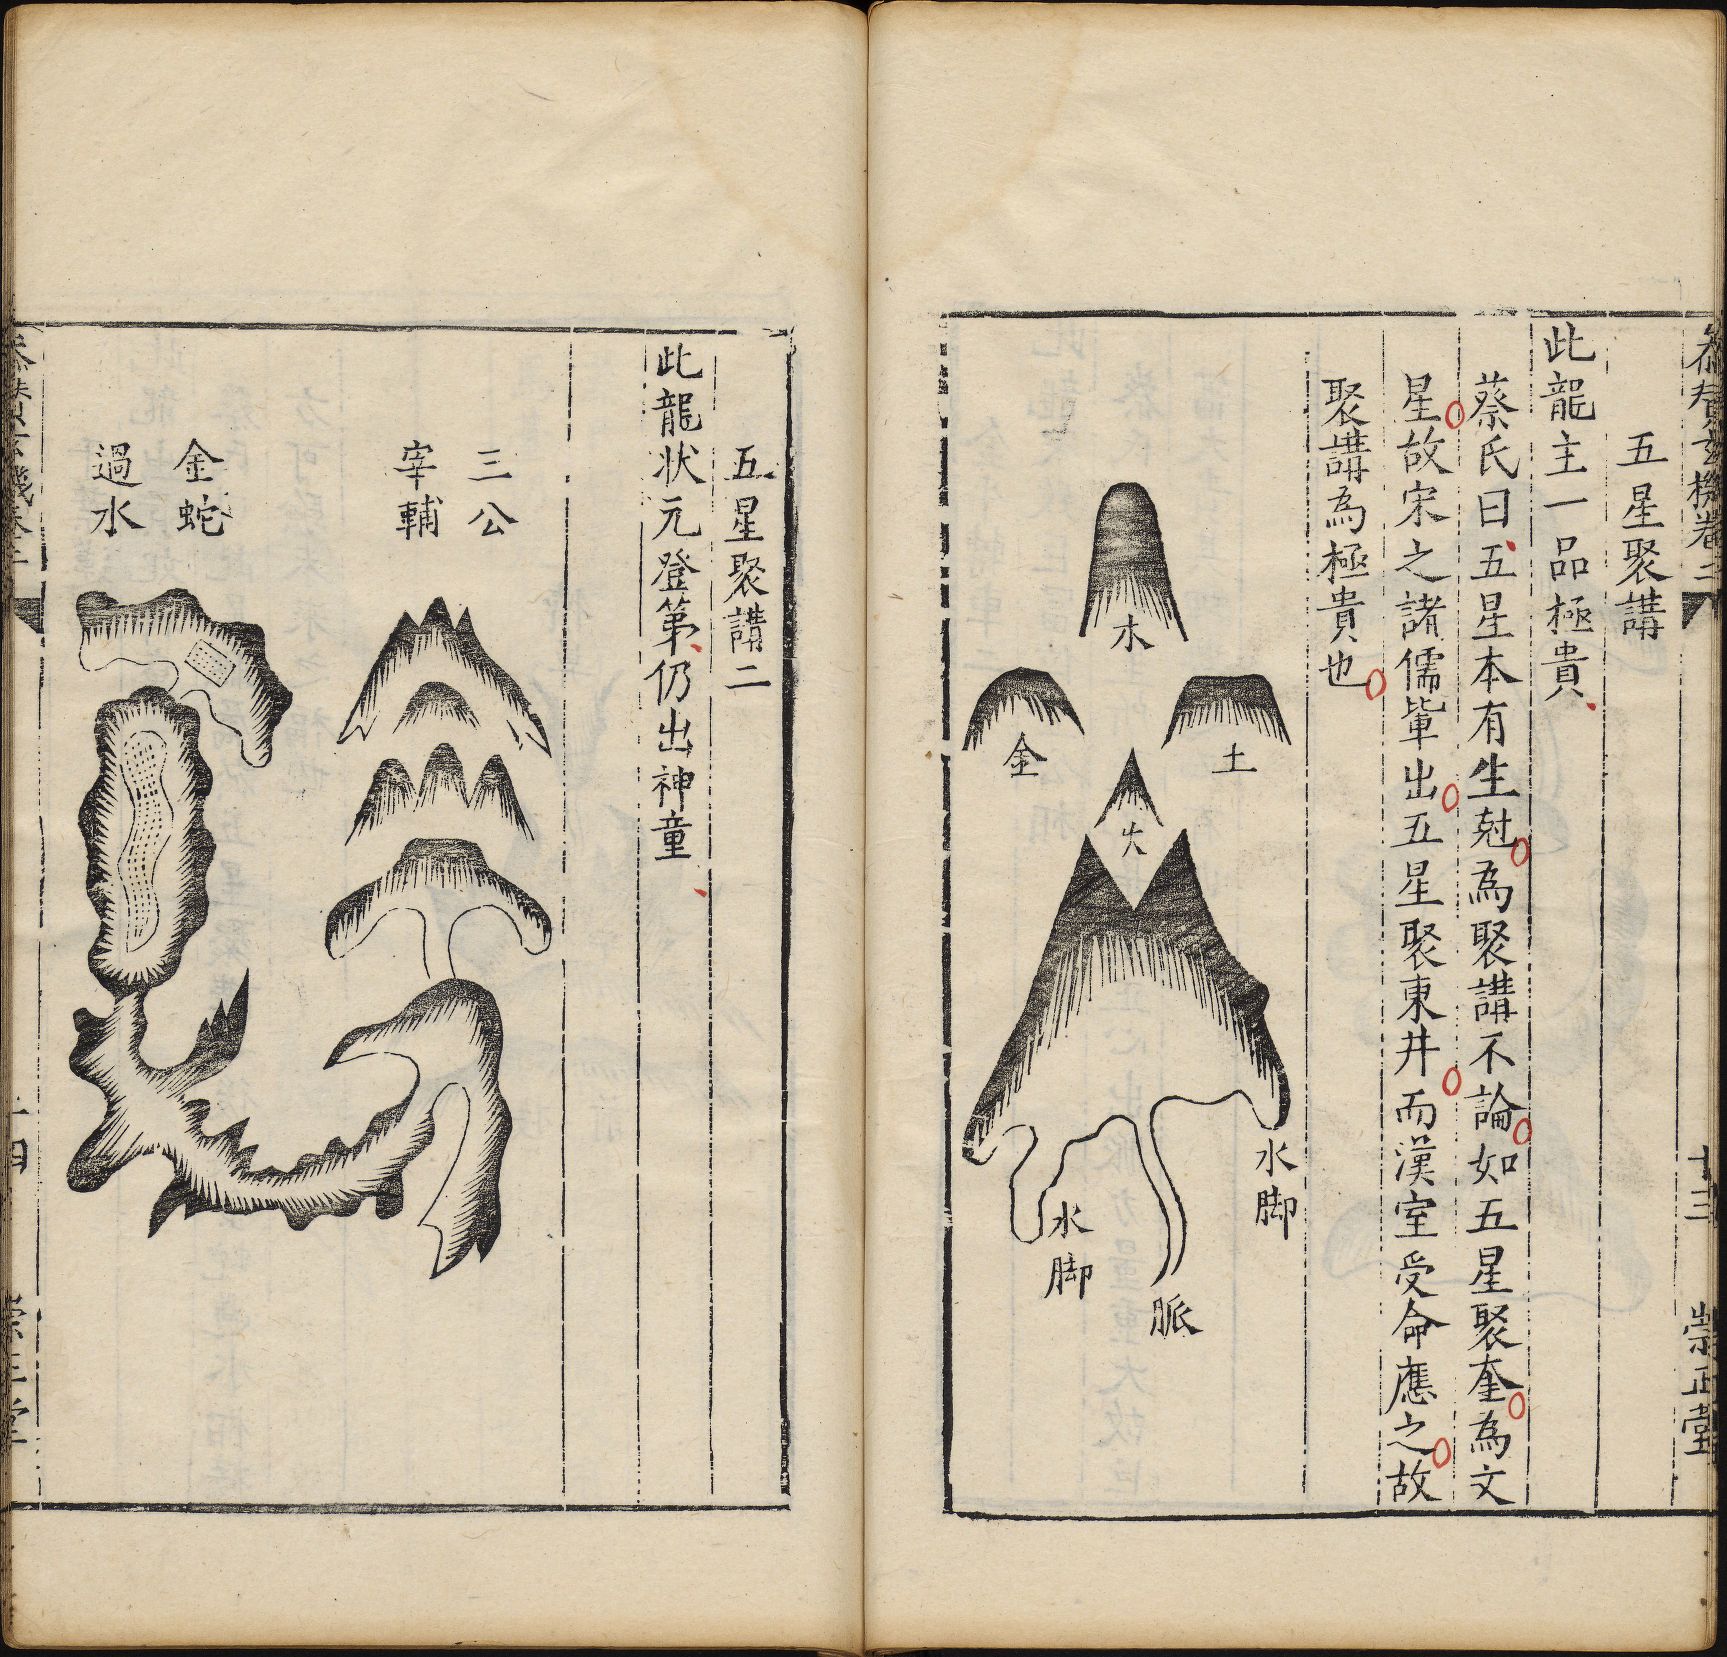 五星聚講
此龍主一品極貴
蔡氏曰五星本有生尅為聚講不論如五星聚奎為文
星故宋之諸儒軰出五星聚東井而漢室受命應之故
聚講為極貴也
木
土
金
火
水脚
水脚
脈
十三
崇正堂
五星聚講二
此龍状元登第仍出神童
三公
宰輔
金蛇
過水